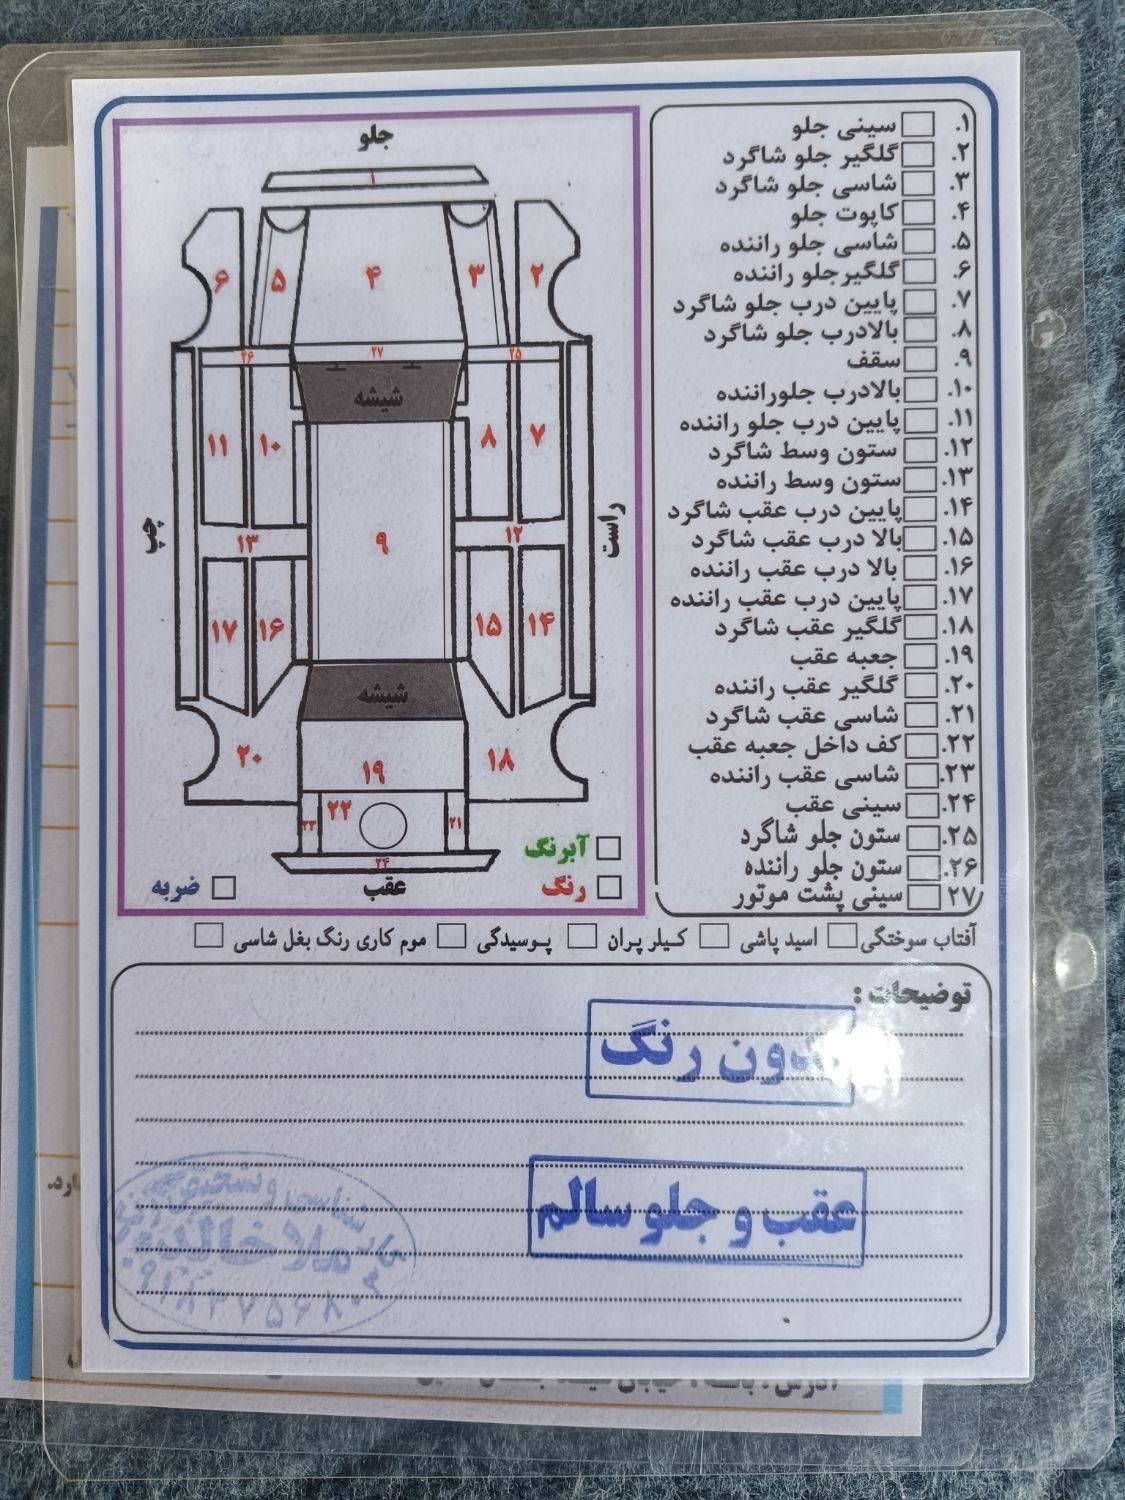 جلو
۱
۶
۵
۴
۳
۲
۲۶
۲۷
۲۵
شیشه
۱۱
۱۰
۸
۷
چپ
راست
۱۳
۹
۱۲
۱۷
۱۶
۱۵
۱۴
شیشه
۲۰
۱۹
۱۸
۲۳
۲۲
۲۱
۲۴
عقب
آبرنگ
رنگ
ضربه
۱. سینی جلو
۲. گلگیر جلو شاگرد
۳. شاسی جلو شاگرد
۴. کاپوت جلو
۵. شاسی جلو راننده
۶. گلگیرجلو راننده
۷. پایین درب جلو شاگرد
۸. بالادرب جلو شاگرد
۹. سقف
۱۰. بالادرب جلوراننده
۱۱. پایین درب جلو راننده
۱۲. ستون وسط شاگرد
۱۳. ستون وسط راننده
۱۴. پایین درب عقب شاگرد
۱۵. بالا درب عقب شاگرد
۱۶. بالا درب عقب راننده
۱۷. پایین درب عقب راننده
۱۸. گلگیر عقب شاگرد
۱۹. جعبه عقب
۲۰. گلگیر عقب راننده
۲۱. شاسی عقب شاگرد
۲۲. کف داخل جعبه عقب
۲۳. شاسی عقب راننده
۲۴. سینی عقب
۲۵. ستون جلو شاگرد
۲۶. ستون جلو راننده
۲۷ سینی پشت موتور
آفتاب سوختگی اسید پاشی کیلر پران پوسیدگی موم کاری رنگ بغل شاسی
توضیحات :
بدون رنگ
عقب و جلو سالم